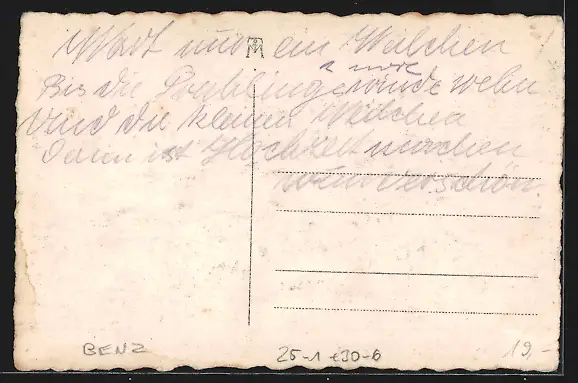 Wart nur ein Weilchen
Bis die Frühlingswinde wehn
Und die kleinen Mädchen
Dann ist Hochzeit machen
BENZ
25-1 €30-6
19,-